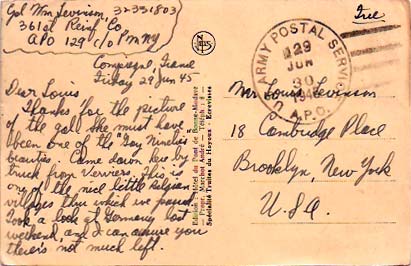 Gol Wm Levinson, 32331803
361st Reinf Co,
APO 129 c/o PM NY
Free
Friday 29 Jun 45
Dear Louis
Thanks for the picture
of the gal. She must have
been one of the Gay Nineties
beauties. Came down here by
truck from Verviers. This is
one of the nice little Belgian
villages thru which we passed.
Took a look at Germany last
weekend, and I can assure you
there's not much left.
Edition: Hôtel du Pont de Bonne-Modave
Propr. Marchot André - Téléph: 8 -
Spécialité Truites du Hoyoux - Ecrevisses
U.S. ARMY POSTAL SERVICE
129
JUN
30
1945
A.P.O.
Mr. Louis Levinson
18 Cambridge Place
Brooklyn, New York
U.S.A.